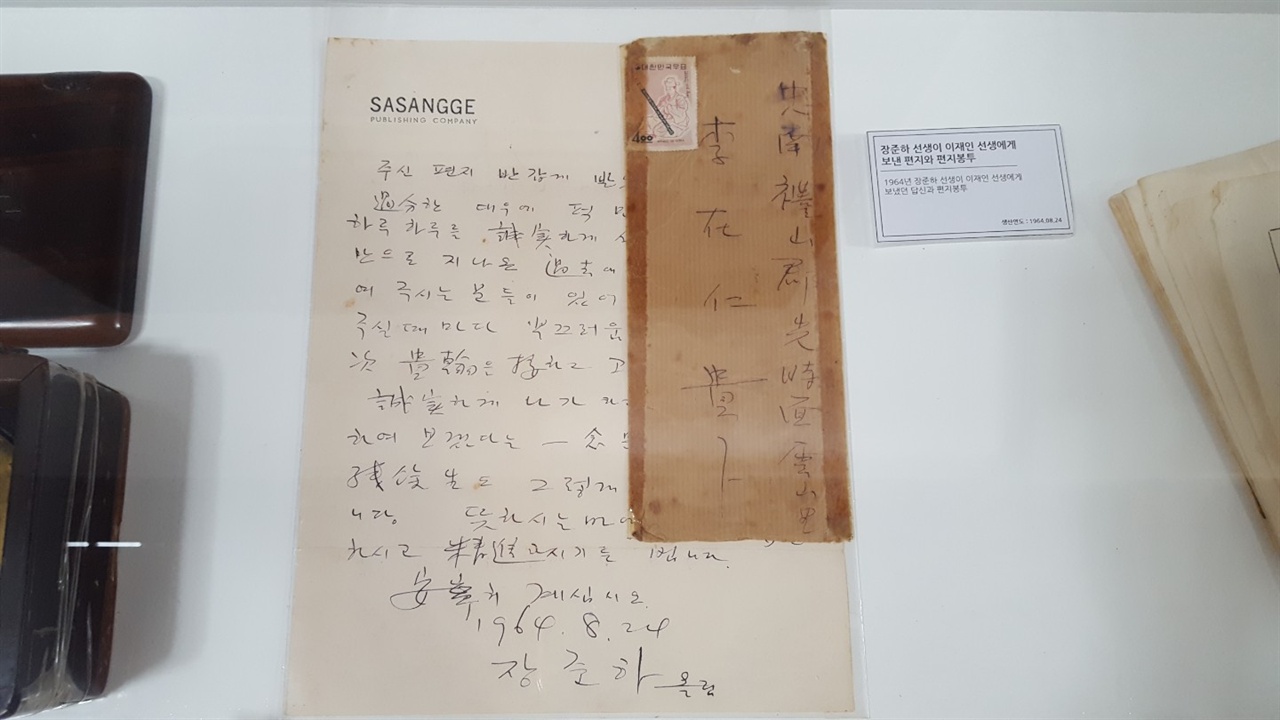 SASANGGE
PUBLISHING COMPANY
주신 편지 반갑게 받
過分한 대우에 퍽
하루 하루를 誠実하게
반으로 지나온 過去
여 주시는 분들이 있어
주실 때마다 부끄러움
次 貴翰은 接하고
誠実하게 나가
하여 보겠다는 一念
그렇게
니다. 뜻하시는
하시고 精進하시기를 빕니다.
安寧히 계십시오.
1964. 8. 24
장준하 올림
대한민국우표
4.00
忠南 禮山郡 光時面 雲山里
李在仁 貴下
장준하 선생이 이재인 선생에게
보낸 편지와 편지봉투
1964년 장준하 선생이 이재인 선생에게
보냈던 답신과 편지봉투
생산연도 : 1964.08.24